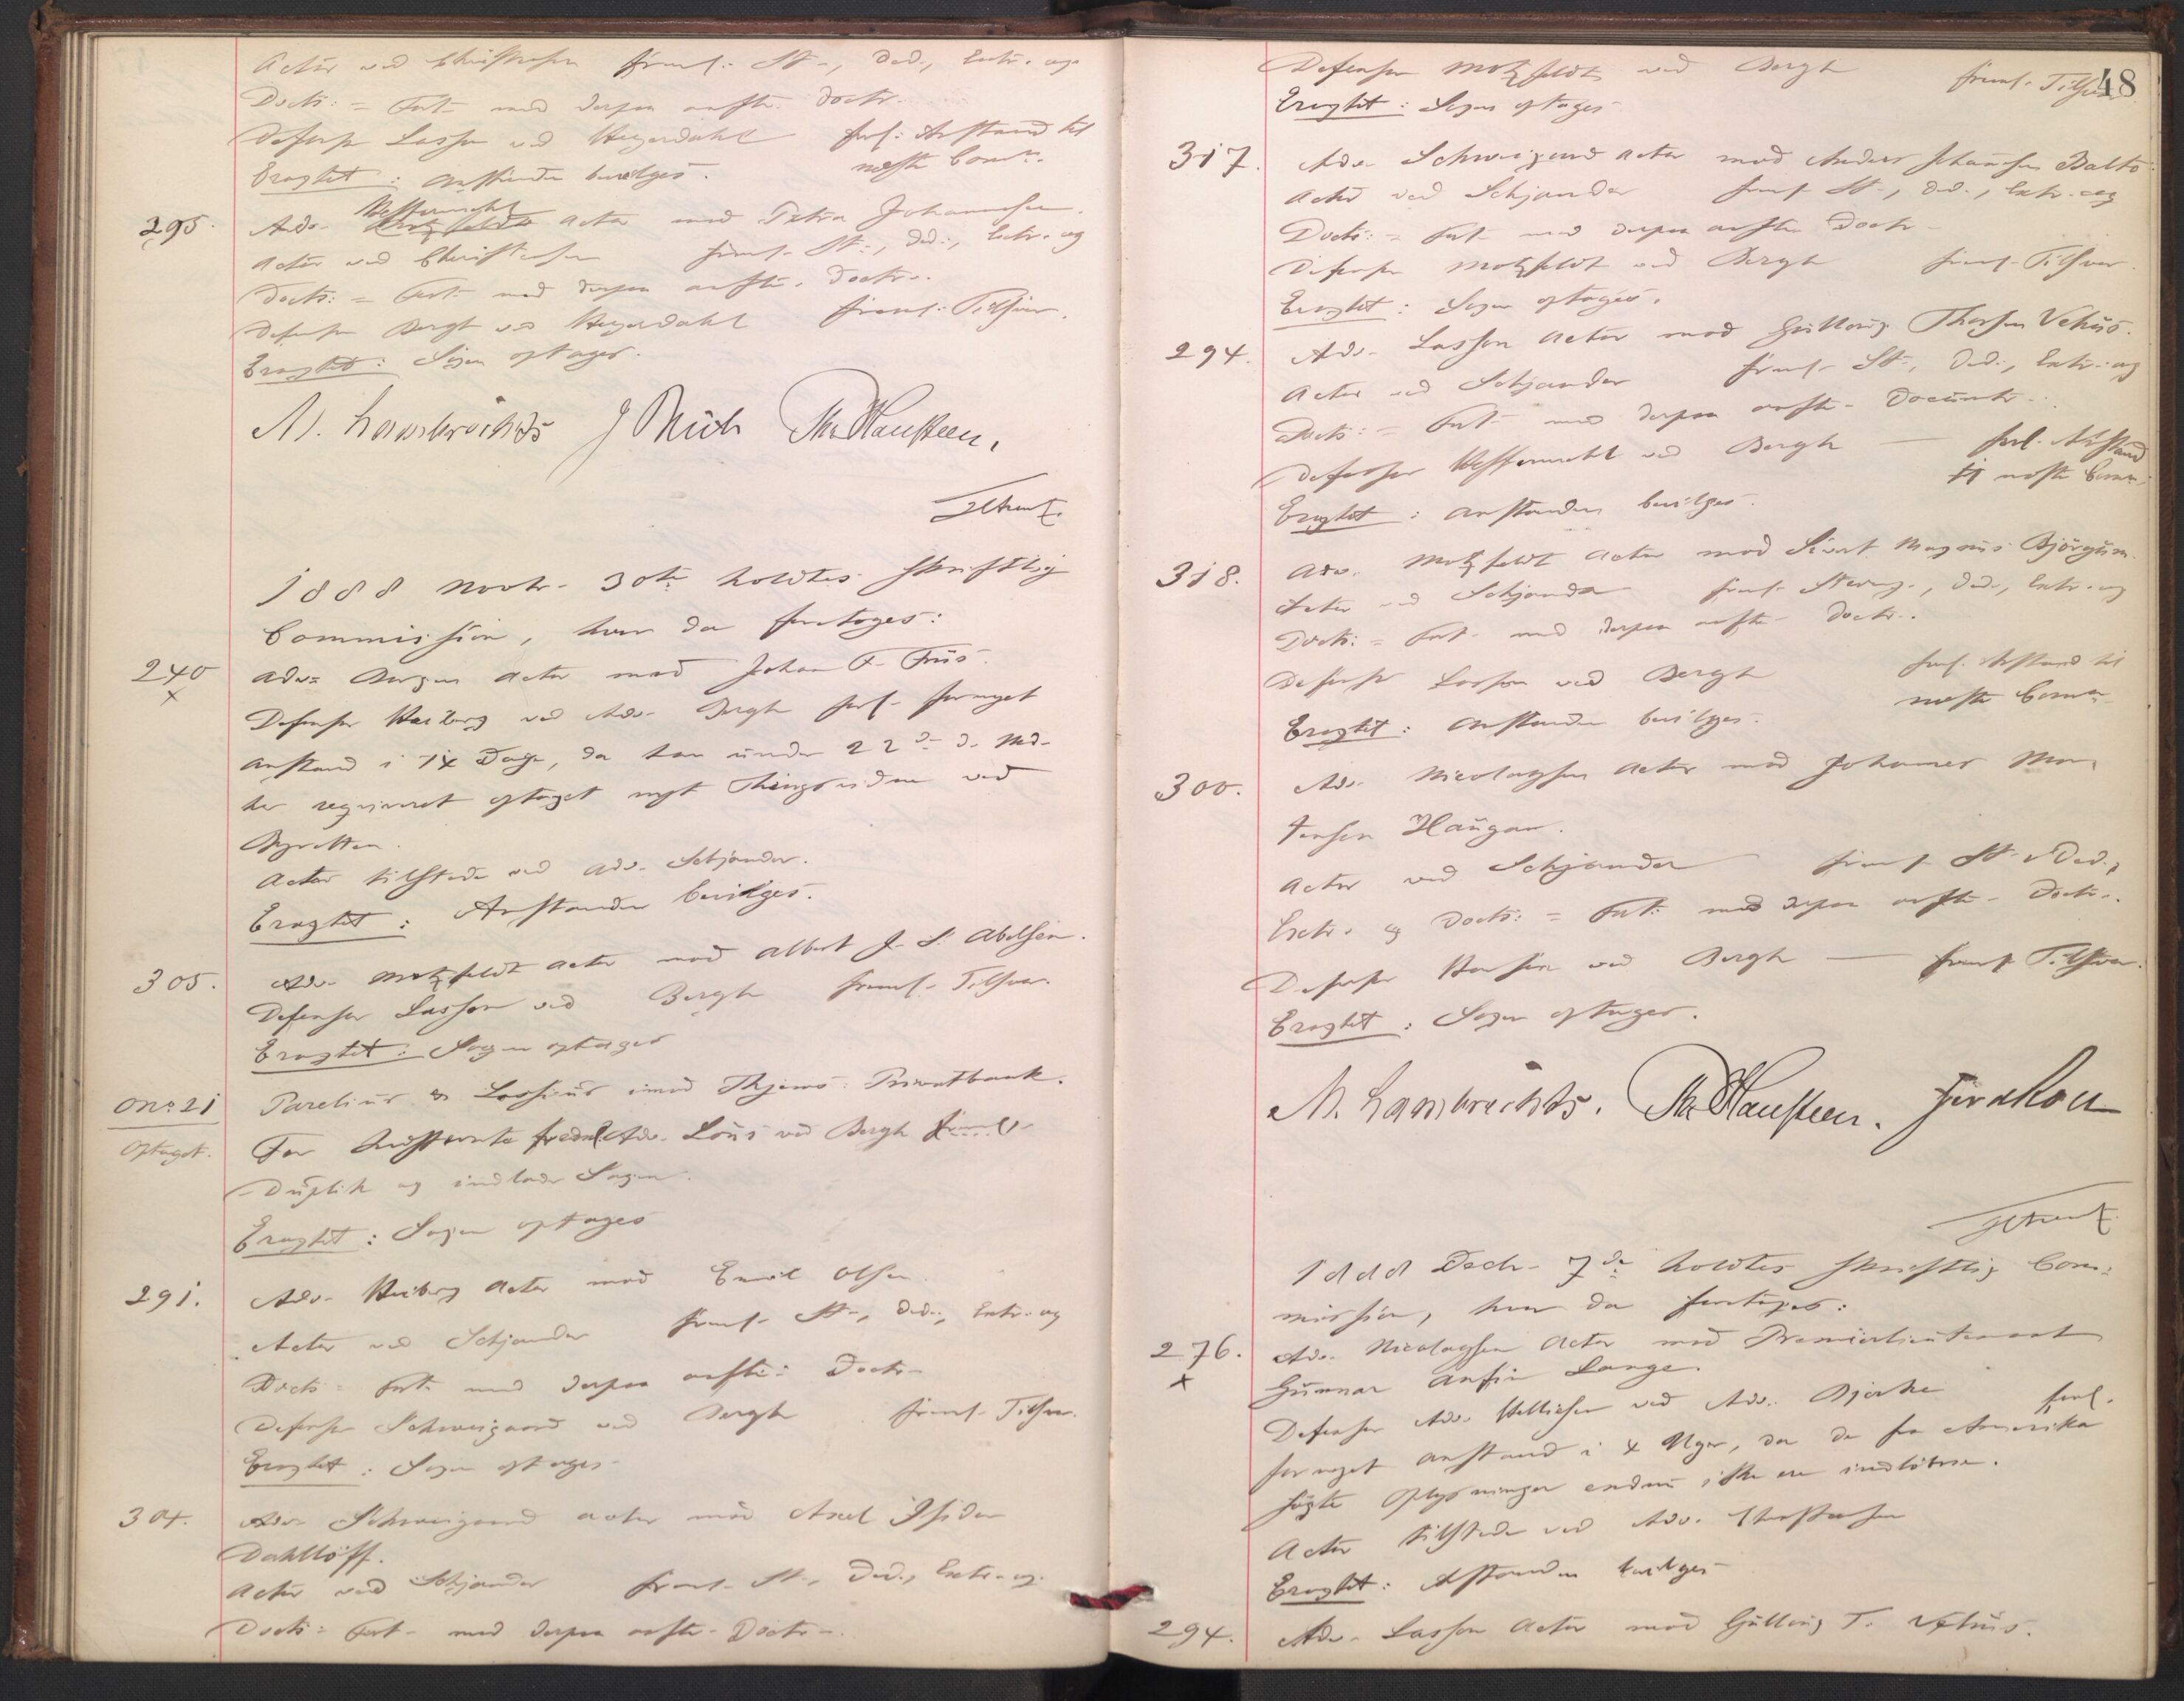 Actor ved Christensen freml: St-, Ded., Extr. og
Docts: = Fort. med derpaa anfte. Doctr.
Defensor Lasson ved Heyerdahl forl: Anstand til
næste Comn.
Eragtet: Anstanden bevilges.
295. Adv. Hesselberg Actor mod Petra Johannesen.
Actor ved Christensen freml- St-, Ded-, Extr. og
Docts: = Fort: med derpaa anfte. Doctr.
Defensor Bergh ved Heyerdahl freml: Tilsvar.
Eragtet: Sagen optages.
M. Lambrechts J Thür Thr Hansteen.
1888 Novbr. 30te holdtes skriftlig
Commission, hvor da foretoges:
240 Adv= Bergen Actor mod Johan F. Friis.
x
Defensor Heiberg ved Adv. Bergh forl- fornyet
Anstand i 14 Dage, da han under 22de d. Md-
har requireret optaget nyt Thingsvidne ved
Byretten.
Actor tilstede ved Adv. Schjander.
Eragtet: Anstanden bevilges.
305. Adv. Motzfeldt Actor mod Albert J. S. Abelsen.
Defensor Lasson ved Bergh freml- Tilsvar.
Eragtet: Sagen optages
On: 21 Parelius & Lossius imod Thjems. Privatbank.
Optaget. For Indstevnte Adv. Lous ved Bergh
Duplik og indlader Sagen.
Eragtet: Sagen optages
291. Adv. Heiberg Actor mod Emil Olsen.
Actor ved Schjander freml- St-, Ded:, Extr. og
Docts = Fort. med derpaa anfte: Doctr-
Defensor Schweigaard ved Bergh freml- Tilsvar.
Eragtet: Sagen optages-
304. Adv. Schweigaard Actor mod Axel Isidor
Dahllöff.
Actor ved Schjander freml- St-, Ded., Extr. og.
Docts = Fort- med derpaa anfte- Doctr-.
48
Defensor Motzfeldt ved Bergh freml. Tilsvar
Eragtet: Sagen optages-
317. Adv. Schweigaard Actor mod Anders Johansen Balto
Actor ved Schjander freml- St-, Ded., Extr. og
Docts: = Fort- med derpaa anfte Doctr-
Defensor Motzfeldt ved Bergh freml- Tilsvar.
Eragtet: Sagen optages.
294. Adv. Lasson Actor mod Gulling Thorsen Vehus.
Actor ved Schjander freml- St-, Ded:, Extr. og
Docts: = Fort- med derpaa anfte- Documtr..
Defensor Hesselberg ved Bergh — forl. Anstand
til næste Comn.
Eragtet: Anstanden bevilges.
318. Adv. Motzfeldt Actor mod Sivert Magnus Bjørgum.
Actor ved Schjander freml- Stevng., Ded., Extr. og
Docts: = Fort- med derpaa anfte- Doctr..
Defensor Lasson ved Bergh forl. Anstand til
næste Comn.
Eragtet: Anstanden bevilges.
300. Adv. Nicolaysen Actor mod Johannes Mor-
tensen Haugan.
Actor ved Schjander freml- St-, Ded.,
Extr. og Docts: = Fort: med derpaa anfte- Doctr..
Defensor Hansen ved Bergh — freml- Tilsvar.
Eragtet: Sagen optages.
M. Lambrechts. Thr Hansteen.
1888 Decbr. 7de holdtes skriftlig Com-
mission, hvor da foretoges:
276. Adv. Nicolaysen Actor mod Premierlieutenant
x Gunnar Anfin Lange.
Defensor Adv. Helliesen ved Adv. Bjerke forl.
fornyet Anstand i 4 Uger, da de fra Amerika
søgte Oplysninger endnu ikke ere indløbne.
Actor tilstede ved Adv. Christensen
Eragtet: Anstanden bevilges-
294. Adv. Lasson Actor mod Gulling T. Vehus.